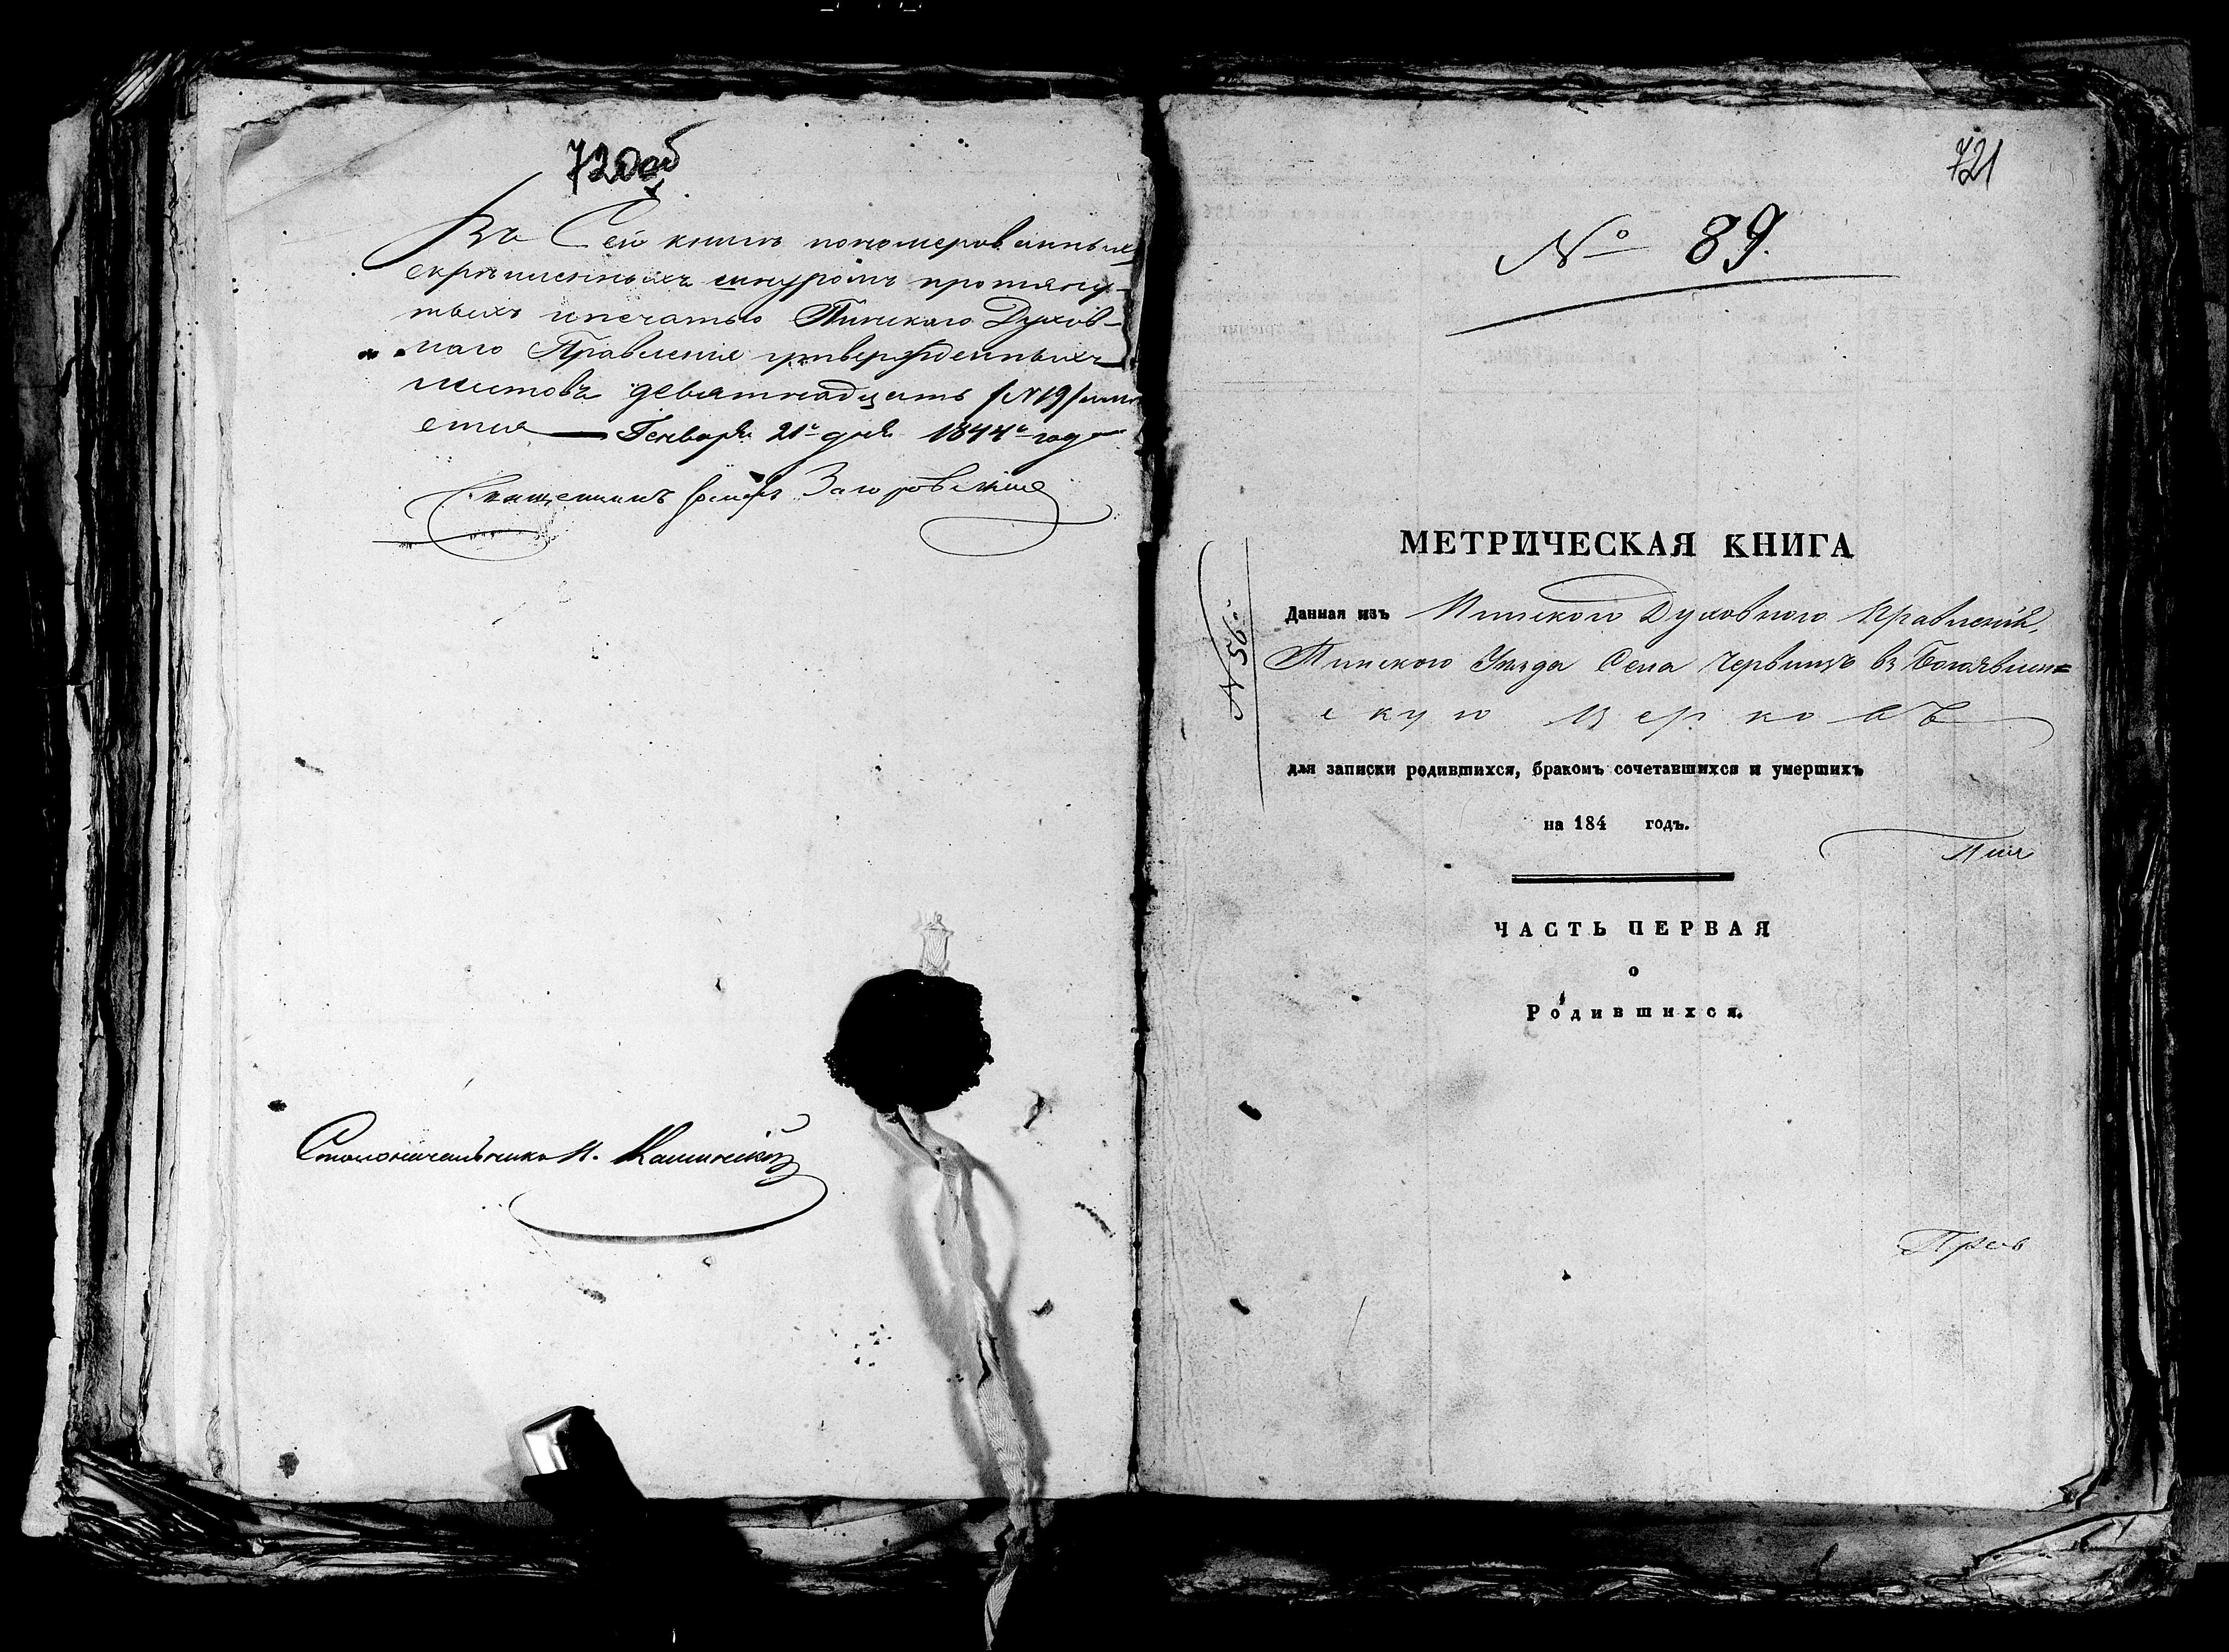 720об
Въ Сей книгѣ пономерованныхъ
скрѣпленныхъ шнуромъ протяну-
тыхъ и печатью Пинскаго Духов-
наго Правленія утвержденныхъ
листовъ девятнадцать /№19/
Генваря 21го дня 1844го года
Священникъ Загоровскій
Столоначальникъ
721
№ 89.
№ 56.
МЕТРИЧЕСКАЯ КНИГА
Данная изъ Пинскаго Духовнаго Правленія,
Пинскаго Уѣзда Села Червищъ въ Богоявлен=
скую Церковь
для записки родившихся, бракомъ сочетавшихся и умершихъ
на 184 годъ.
Пин
ЧАСТЬ ПЕРВАЯ
о
Родившихся.
Прав